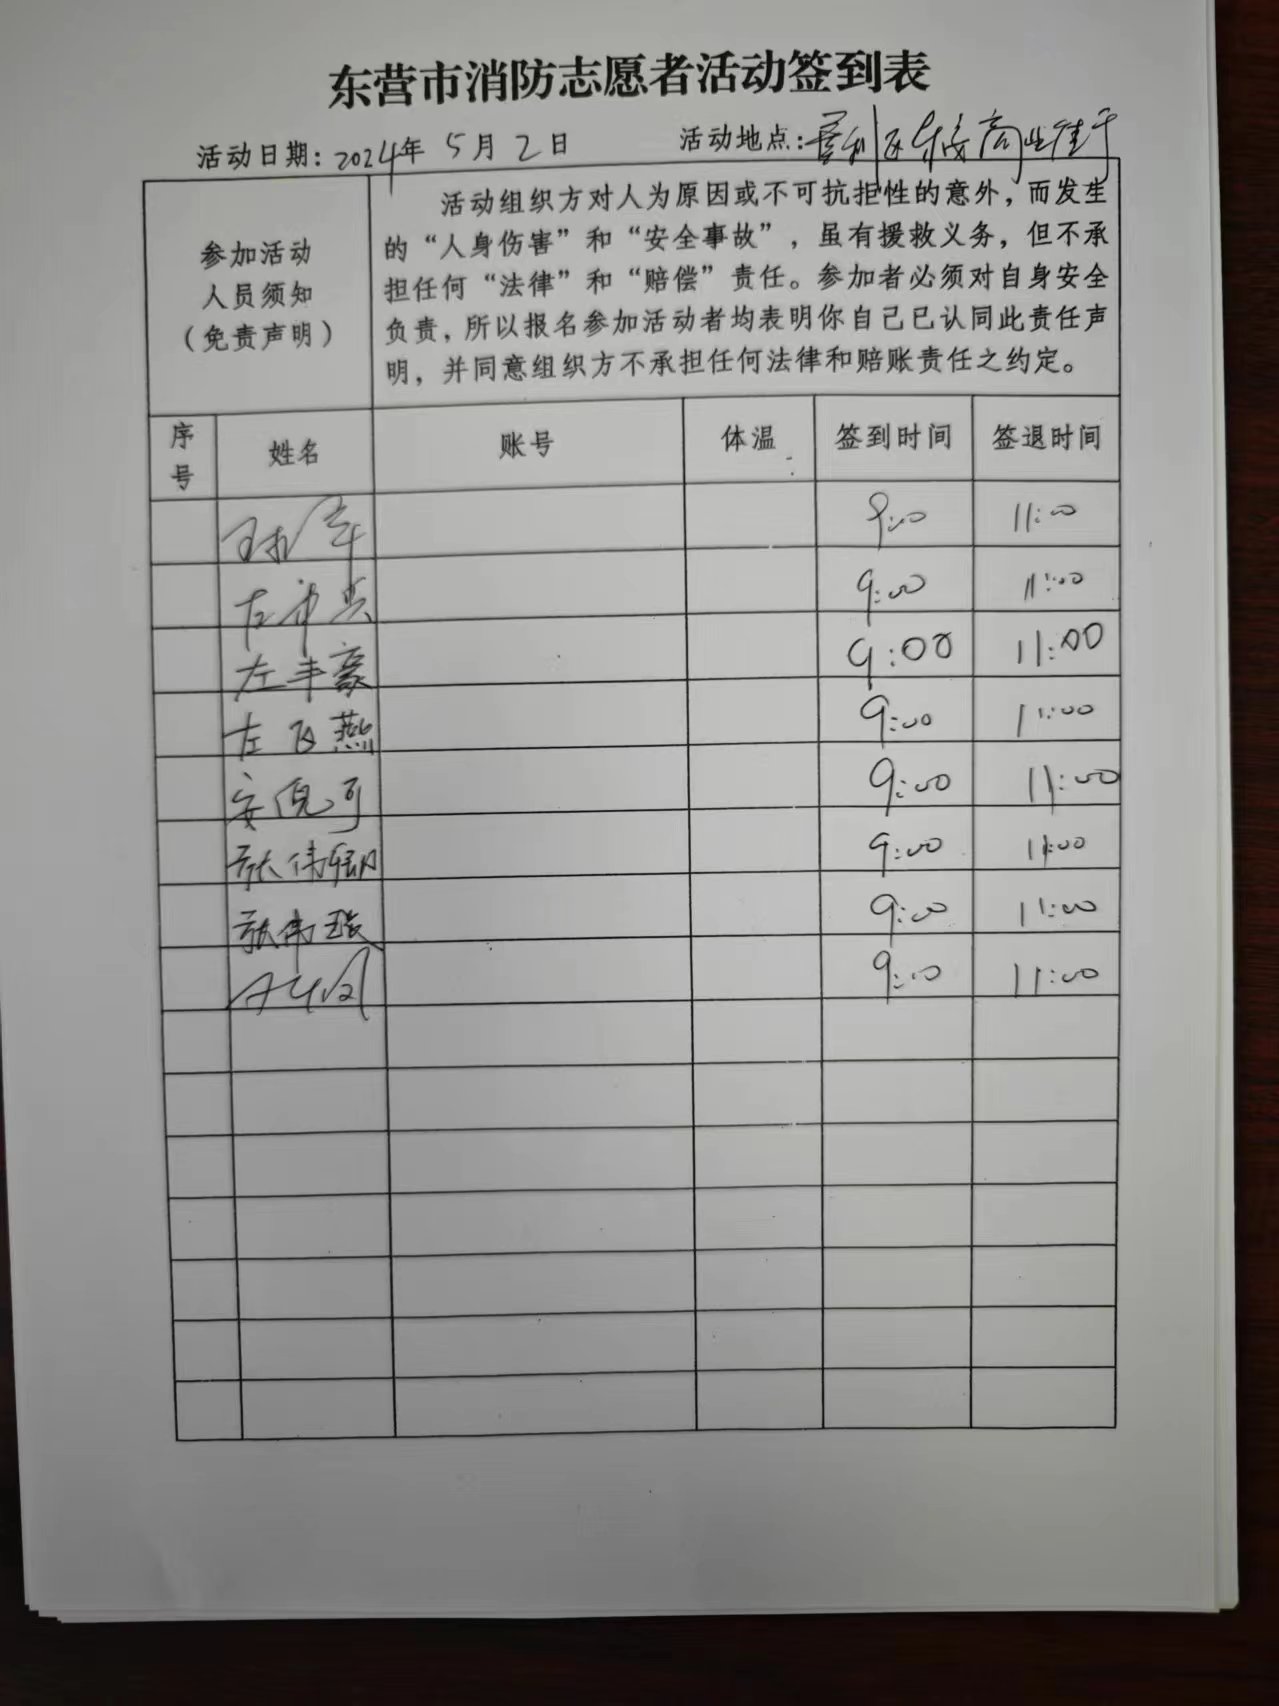 东营市消防志愿者活动签到表
活动日期：2024年 5月2日 活动地点：垦利区 商业街
参加活动
人员须知
（免责声明）
活动组织方对人为原因或不可抗拒性的意外，而发生
的“人身伤害”和“安全事故”，虽有援救义务，但不承
担任何“法律”和“赔偿”责任。参加者必须对自身安全
负责，所以报名参加活动者均表明你自己已认同此责任声
明，并同意组织方不承担任何法律和赔账责任之约定。
序号 姓名 账号 体温 签到时间 签退时间
9:00 11:00
9:00 11:00
左丰豪 9:00 11:00
左飞燕 9:00 11:00
安倪可 9:00 11:00
张伟 9:00 11:00
张伟 9:00 11:00
9:00 11:00